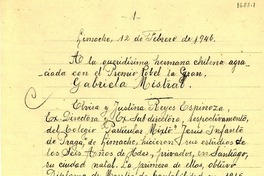 - 1 -
Limache, 12 de Febrero de 1946.
A la queridísima hermana chilena agra-
ciada con el Premio Nobel la Gran
Gabriela Mistral.
Elvira y Justina Reyes Espinoza,
Ex Directora y Ex Sub directora, respectivamente,
del Colegio Particular Mixto "Jesús Infante
de Praga", de Limache, hicieron sus estudios de
los Seis Años de Hdes, privados, en Santiago,
su ciudad natal. La primera de ellas, obtuvo